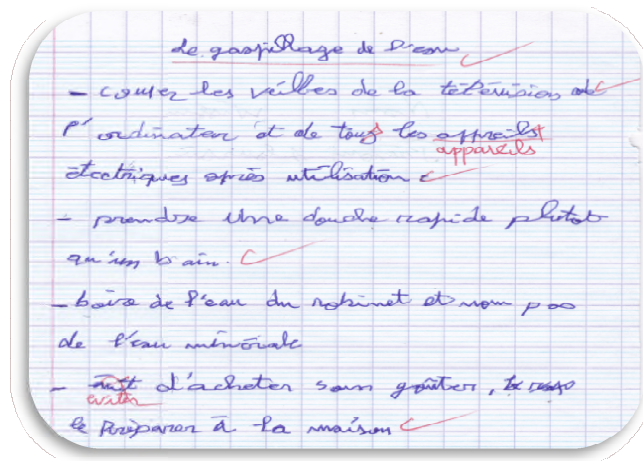 Le gaspillage de l'eau
- couper les veilles de la télévision de
l'ordinateur et de tous les appreils
appareils
électriques après utilisation
- prendre une douche rapide plutot
qu'un bain.
- boire de l'eau du robinet et non pas
de l'eau minérale
- d'acheter son goûter,
eviter
le préparer à la maison